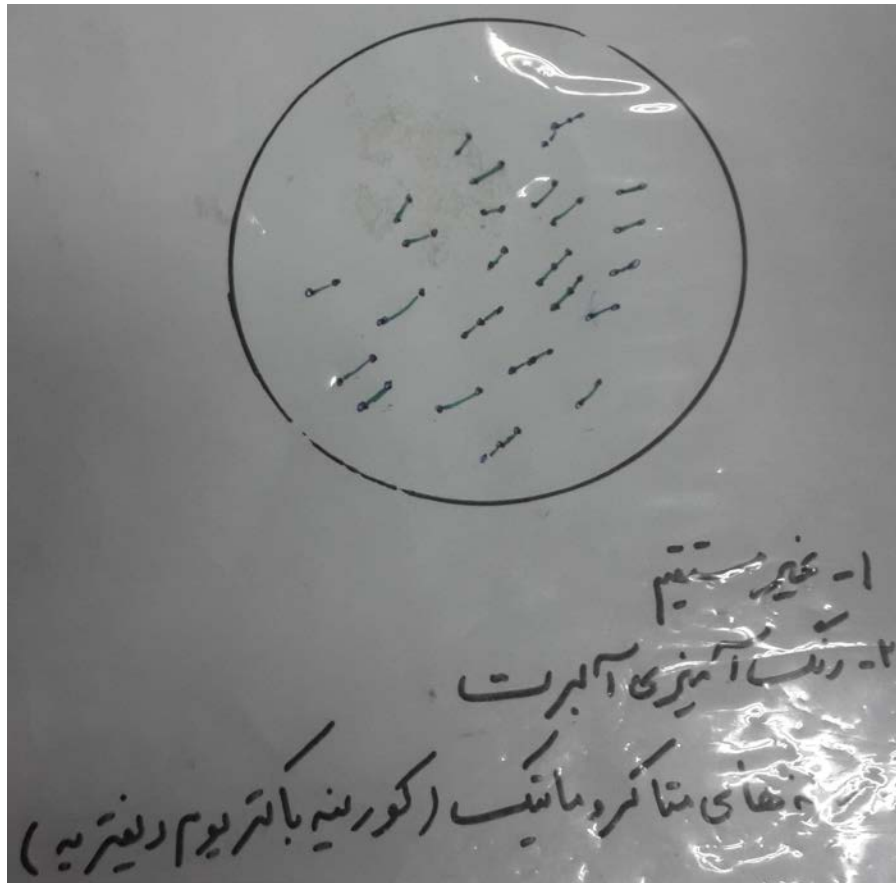 ۱- غیر مستقیم
۲- رنگ آمیزی آلبرت
متاکروماتیک (کورینه باکتریوم دیفتریه)